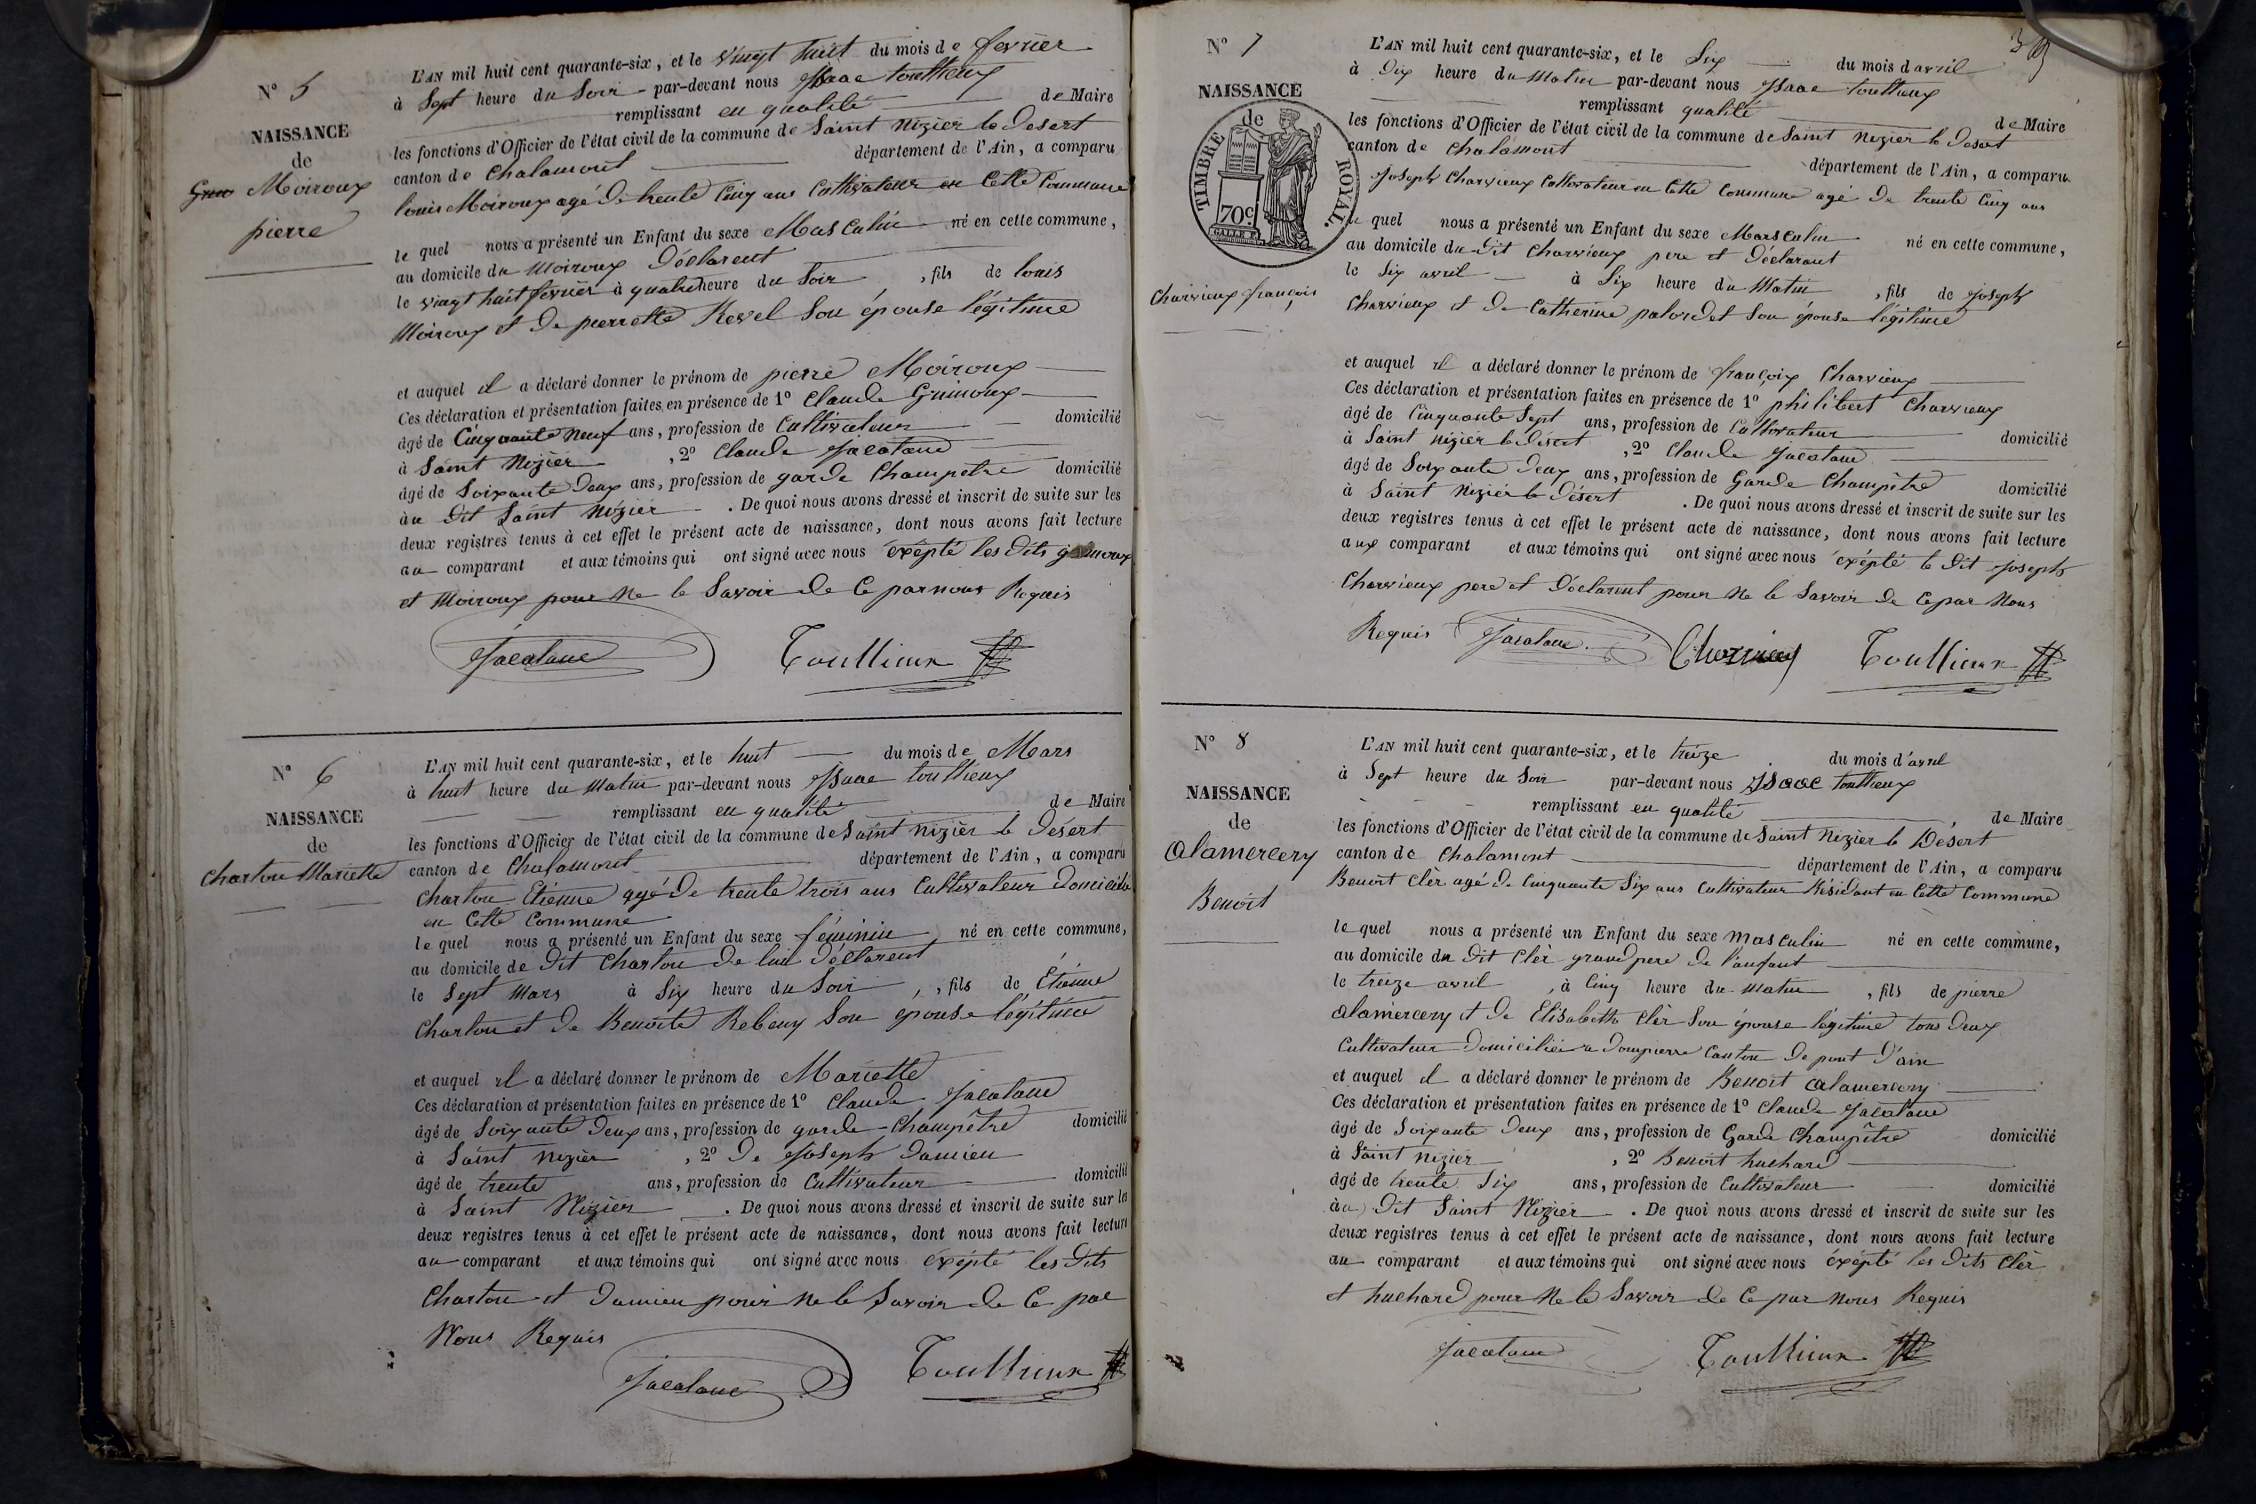 N° 5
NAISSANCE
de
Moiroux
pierre
L'AN mil huit cent quarante-six, et le vingt huit du mois de fevrier
à Sept heure du Soir par-devant nous Isaac toullieux
remplissant en qualité de Maire
les fonctions d'Officier de l'état civil de la commune de Saint Nizier le Desert
canton de Chalamont département de l'Ain, a comparu
louis Moiroux agé de trente Cinq ans Cultivateur en Cette Commune
le quel nous a présenté un Enfant du sexe Masculin né en cette commune,
au domicile du Moiroux Déclarent
le vingt huit fevrier à quatre heure du Soir, fils de louis
Moiroux et de pierrette Revel Son épouse légitime
et auquel il a déclaré donner le prénom de pierre Moiroux
Ces déclaration et présentation faites en présence de 1° Claude Guinoux
âgé de Cinquante Neuf ans, profession de Cultivateur domicilié
à Saint Nizier, 2° Claude Jacatane
âgé de Soixante Deux ans, profession de garde Champetre domicilié
au Dit Saint Nizier. De quoi nous avons dressé et inscrit de suite sur les
deux registres tenus à cet effet le présent acte de naissance, dont nous avons fait lecture
au comparant et aux témoins qui ont signé avec nous éxépté les Dits
et Moiroux pour Ne le Savoir de Ce par nous Requis
Jacatane Toullieux
N° 6
NAISSANCE
de
Charton Mariette
L'AN mil huit cent quarante-six, et le huit du mois de Mars
à huit heure du Matin par-devant nous Isaac toullieux
remplissant en qualité de Maire
les fonctions d'Officier de l'état civil de la commune de Saint Nizier le Désert
canton de Chalamont département de l'Ain, a comparu
Charton Etienne agé De trente trois ans Cultivateur Domicilié
en Cette Commune
le quel nous a présenté un Enfant du sexe féminin né en cette commune,
au domicile de Dit Charton De lui Déclarent
le Sept Mars à Six heure du Soir, fils de Étienne
Charton et De Benoite Rebeny Son épouse légitime
et auquel il a déclaré donner le prénom de Mariette
Ces déclaration et présentation faites en présence de 1° Claude Jacatane
âgé de Soixante Deux ans, profession de garde Champêtre domicilié
à Saint Nizier, 2° De Joseph Damien
âgé de trente ans, profession de Cultivateur domicilié
à Saint Nizier. De quoi nous avons dressé et inscrit de suite sur les
deux registres tenus à cet effet le présent acte de naissance, dont nous avons fait lecture
au comparant et aux témoins qui ont signé avec nous éxépté les Dits
Charton et Damien pour Ne le Savoir de Ce par
Nous Requis
Jacatane Toullieux
39
N° 7
NAISSANCE
de
TIMBRE ROYAL.
70c.
Charvieux françois
L'AN mil huit cent quarante-six, et le Six du mois d avril
à Dix heure du Matin par-devant nous Isaac toullieux
remplissant qualité de Maire
les fonctions d'Officier de l'état civil de la commune de Saint Nizier le Desert
canton de Chalamont département de l'Ain, a comparu
Joseph Charvieux Cultivateur en Cette Commune agé De trente Cinq ans
le quel nous a présenté un Enfant du sexe Masculin né en cette commune,
au domicile du Dit Charvieux pere et Déclarant
le Six avril à Six heure du Matin, fils de Joseph
Charvieux et De Catherine palordet Son épouse légitime
et auquel il a déclaré donner le prénom de françoix Charvieux
Ces déclaration et présentation faites en présence de 1° philibert Charvieux
âgé de Cinquante Sept ans, profession de Cultivateur domicilié
à Saint Nizier le Désert, 2° Claude Jacatane
âgé de Soixante Deux ans, profession de Garde Champêtre domicilié
à Saint Nizier le Désert. De quoi nous avons dressé et inscrit de suite sur les
deux registres tenus à cet effet le présent acte de naissance, dont nous avons fait lecture
aux comparant et aux témoins qui ont signé avec nous éxépté le Dit Joseph
Charvieux pere et Déclarent pour Ne le Savoir De Ce par Nous
Requis Jacatane Charvieux Toullieux
N° 8
NAISSANCE
de
Alamercery
Benoit
L'AN mil huit cent quarante-six, et le treize du mois d'avril
à Sept heure du Soir par-devant nous Isaac toullieux
remplissant en qualité de Maire
les fonctions d'Officier de l'état civil de la commune de Saint Nizier le Désert
canton de Chalamont département de l'Ain, a comparu
Benoit Clèr agé De Cinquante Six ans Cultivateur Résidant en Cette Commune
le quel nous a présenté un Enfant du sexe masculin né en cette commune,
au domicile du Dit Clèr grand pere De l'anfant
le treize avril, à Cinq heure du Matin, fils de pierre
Alamercery et De Elisabeth Clèr Son épouse légitime tous Deux
Cultivateur Domiciliée a Dompierre Canton De pont D'ain
et auquel il a déclaré donner le prénom de Benoit Alamercery
Ces déclaration et présentation faites en présence de 1° Claude Jacatane
âgé de Soixante Deux ans, profession de Garde Champêtre domicilié
à Saint Nizier, 2° Benoit huchard
âgé de trente Six ans, profession de Cultivateur domicilié
au Dit Saint Nizier. De quoi nous avons dressé et inscrit de suite sur les
deux registres tenus à cet effet le présent acte de naissance, dont nous avons fait lecture
au comparant et aux témoins qui ont signé avec nous éxépté les Dits Clèr
et huchard pour Ne le Savoir de Ce par Nous Requis
Jacatane Toullieux